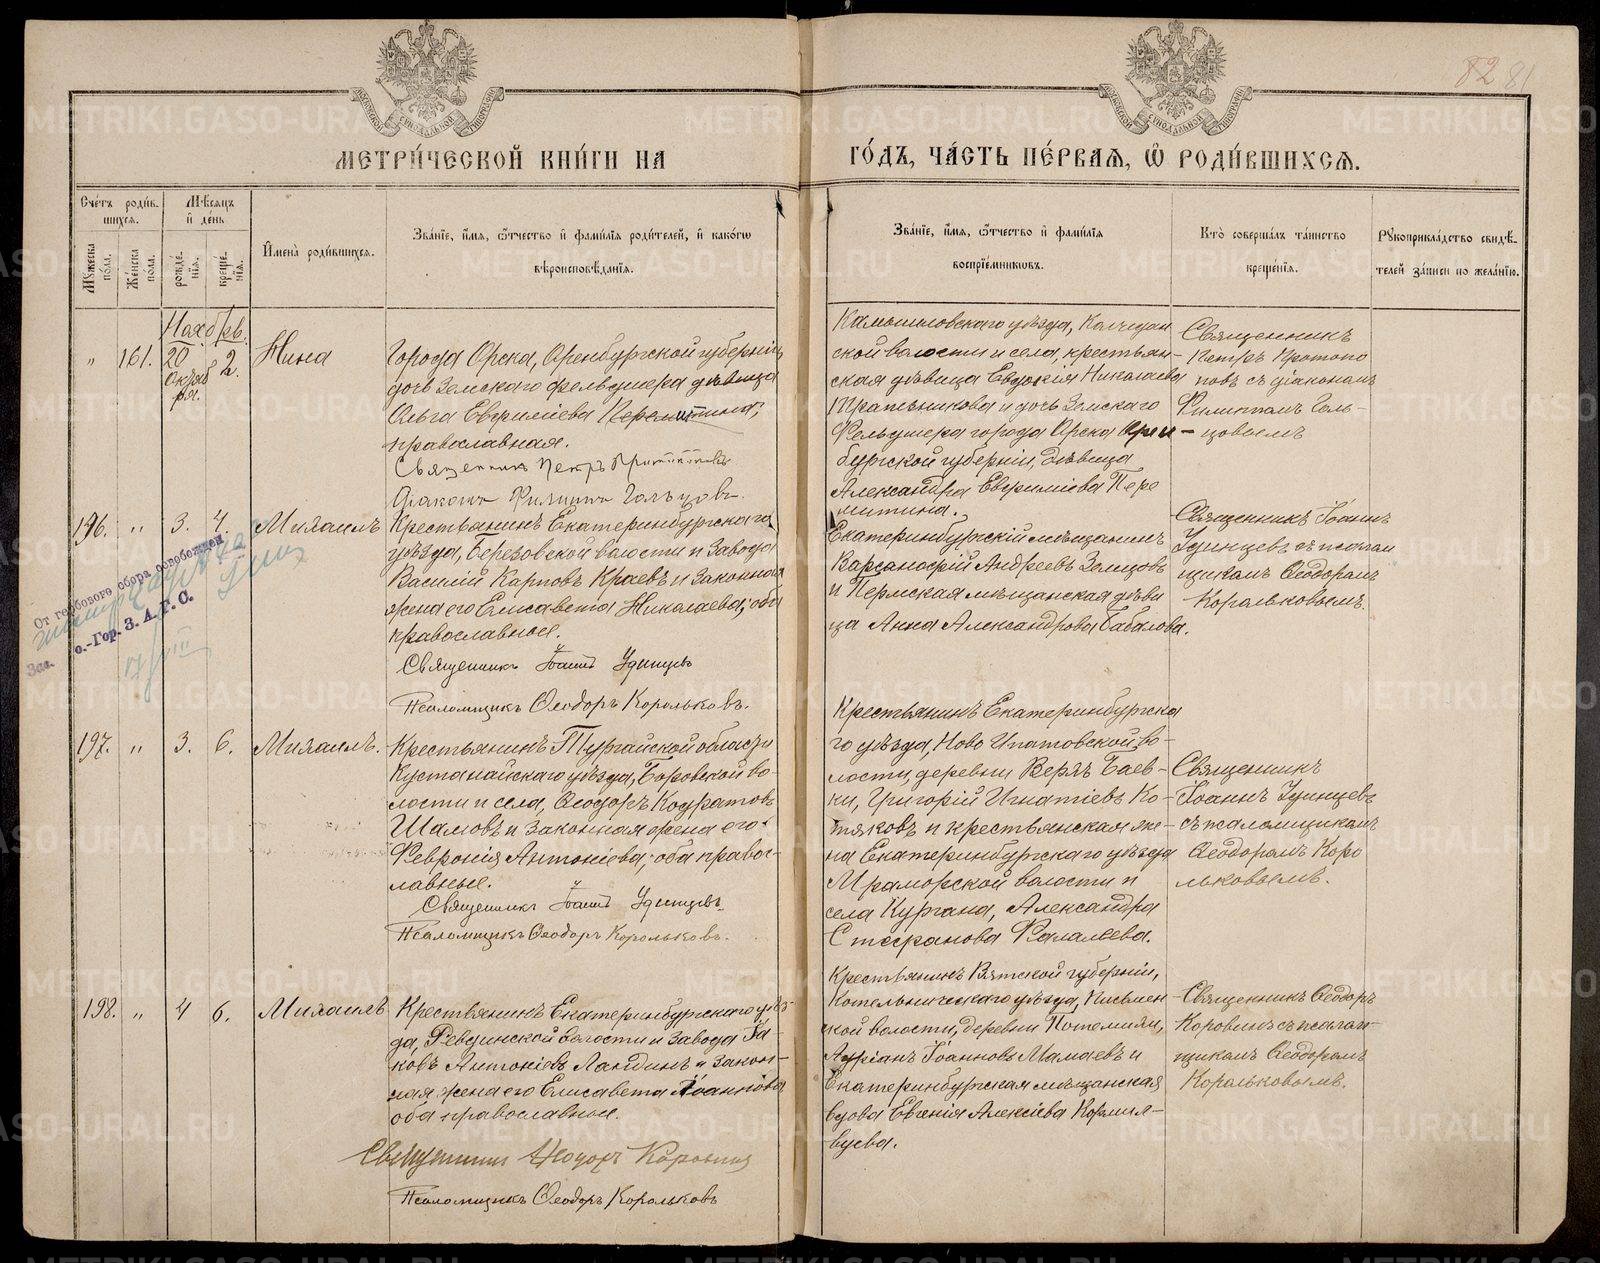 82 81
МЕТРИ́ЧЕСКОЙ КНИ́ГИ НА
ГО́ДЪ, ЧА́СТЬ ПЕ́РВАѦ, Ѡ҆ РОДИ́ВШИХСѦ.
Сче́тъ роди́в-
шихся.
Мѣ́сяцъ
и҆ де́нь
Мꙋ́жеска
по́ла.
Же́нска
по́ла.
рожде́-
нїя.
креще́-
нїя.
И҆мена̀ роди́вшихся.
Зва́нїе, и҆́мя, ѻ҆́тчество и҆ фами́лїя роди́телей, и҆ како́гѡ
вѣроисповѣ́данїя.
Зва́нїе, и҆́мя, ѻ҆́тчество и҆ фами́лїя
воспрїе́мникωвъ.
Кто̀ соверша́лъ та́инство
креще́нїя.
Рꙋкоприкла́дство свидѣ́-
телей за́писи по жела́нїю.
Ноябрь
" 161. 20 2. Нина
Октяб
ря.
Города Орска, Оренбургской губерніи,
дочь Земскаго фельдшера дѣвица
Ольга Евфиміева Перемитина;
православная.
Священникъ Петръ Протопоповъ
Діаконъ Филиппъ Гольцовъ.
Камышловскаго уѣзда, Колчедан
ской волости и села, крестьян-
ская дѣвица Евдокія Николаева
и дочь Земскаго
Фельдшера города Орска Орен-
бургской губерніи, дѣвица
Александра Евфиміева Пере
митина.
Священникъ
Петръ Протопо
повъ съ діакономъ
Филиппомъ Голь-
цовымъ
196. " 3. 4. Михаилъ
Крестьянинъ Екатеринбургскаго
уѣзда, Березовской волости и Завода
Василій Карповъ Краевъ и Законная
жена его Елисавета Николаева; оба
православные.
Священникъ Іоаннъ Удинцевъ
Псаломщикъ Ѳеодоръ Корольковъ.
Екатеринбургскій мѣщанинъ
Варсанофій Андреевъ Земцовъ
и Пермская мѣщанская дѣви
ца Анна Александрова Бабалова.
Священникъ Іоаннъ
Удинцевъ съ псалом
щикомъ Ѳеодоромъ
Корольковымъ.
От гербового сбора освобожден.
о.-Гор. З. А. Г. С.
Зав.
197. " 3. 6. Михаилъ.
Крестьянинъ Тургайской области
Кустанайскаго уѣзда, Боровской во-
лости и села, Ѳеодоръ Кодратовъ
Шамовъ и Законная жена его
Февронія Антоніева; оба правос-
лавные.
Священникъ Іоаннъ Удинцевъ.
Псаломщикъ Ѳеодоръ Корольковъ.
Крестьянинъ Екатеринбургска
го уѣзда, Ново Ипатовской во-
лости, деревни Верхъ Баев-
ки, Григорій Игнатіевъ Ко-
тяковъ и крестьянская же-
на Екатеринбургскаго уѣзда
Мраморской волости и
села Кургана, Александра
Стефанова Фалалеева.
Священникъ
Іоаннъ Удинцевъ
съ псаломщикомъ
Ѳеодоромъ Коро
льковымъ.
198. " 4 6. Михаилъ
Крестьянинъ Екатеринбургскаго уѣз-
да, Ревдинской волости и Завода Іа-
ковъ Антоніевъ Ландинъ и Закон-
ная жена его Елисавета Іоаннова
оба православные.
Священникъ Ѳеодоръ Коровинъ
Псаломщикъ Ѳеодоръ Корольковъ
Крестьянинъ Вятской губерніи,
Котельническаго уѣзда,
кой волости, деревни
Адріанъ Іоанновъ Мамаевъ и
Екатеринбургская мѣщанская
вдова Евгенія Алексіева Кормил-
ьцева.
Священникъ Ѳеодоръ
Коровинъ съ псалом-
щикомъ Ѳеодоромъ
Корольковымъ.
METRIKI.GASO-URAL.RU